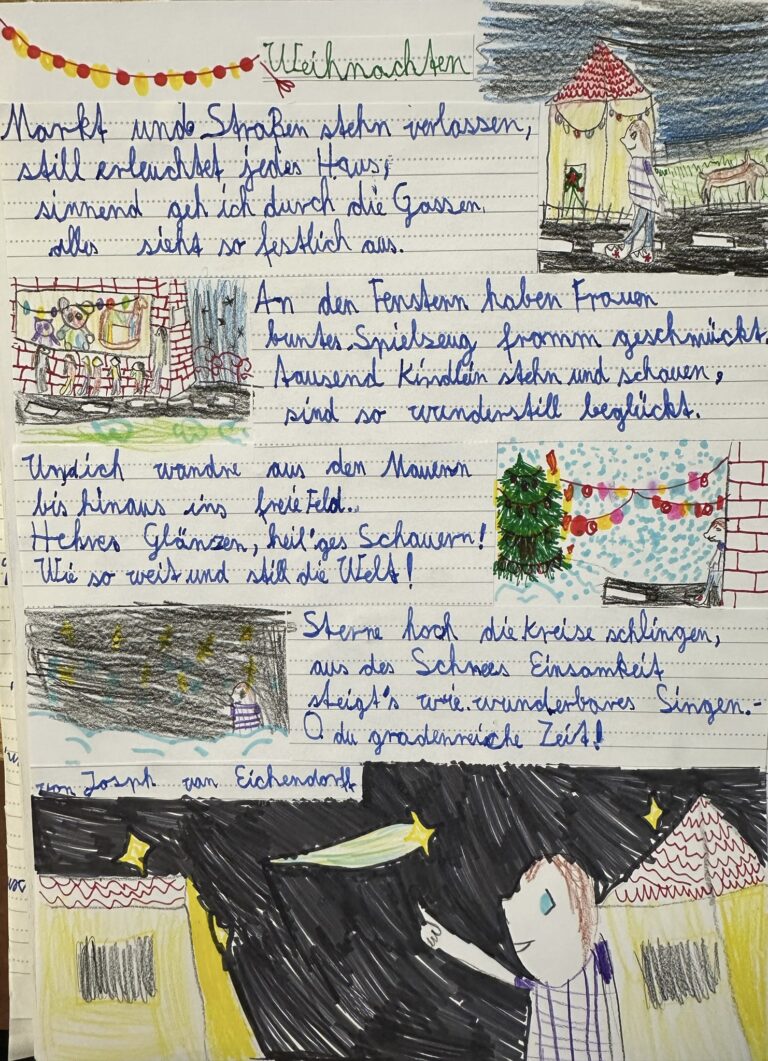 Weihnachten
Markt und Straßen stehn verlassen,
still erleuchtet jedes Haus,
sinnend geh ich durch die Gassen,
alles sieht so festlich aus.
An den Fenstern haben Frauen
buntes Spielzeug fromm geschmückt,
tausend Kindlein stehn und schauen,
sind so wunderstill beglückt.
Und ich wandre aus den Mauern
bis hinaus ins freie Feld.
Hehres Glänzen, heil'ges Schauern!
Wie so weit und still die Welt!
Sterne hoch die Kreise schlingen,
aus des Schnees Einsamkeit
steigt's wie wunderbares Singen.-
O du gradenreiche Zeit!
von Josph van Eichendorff